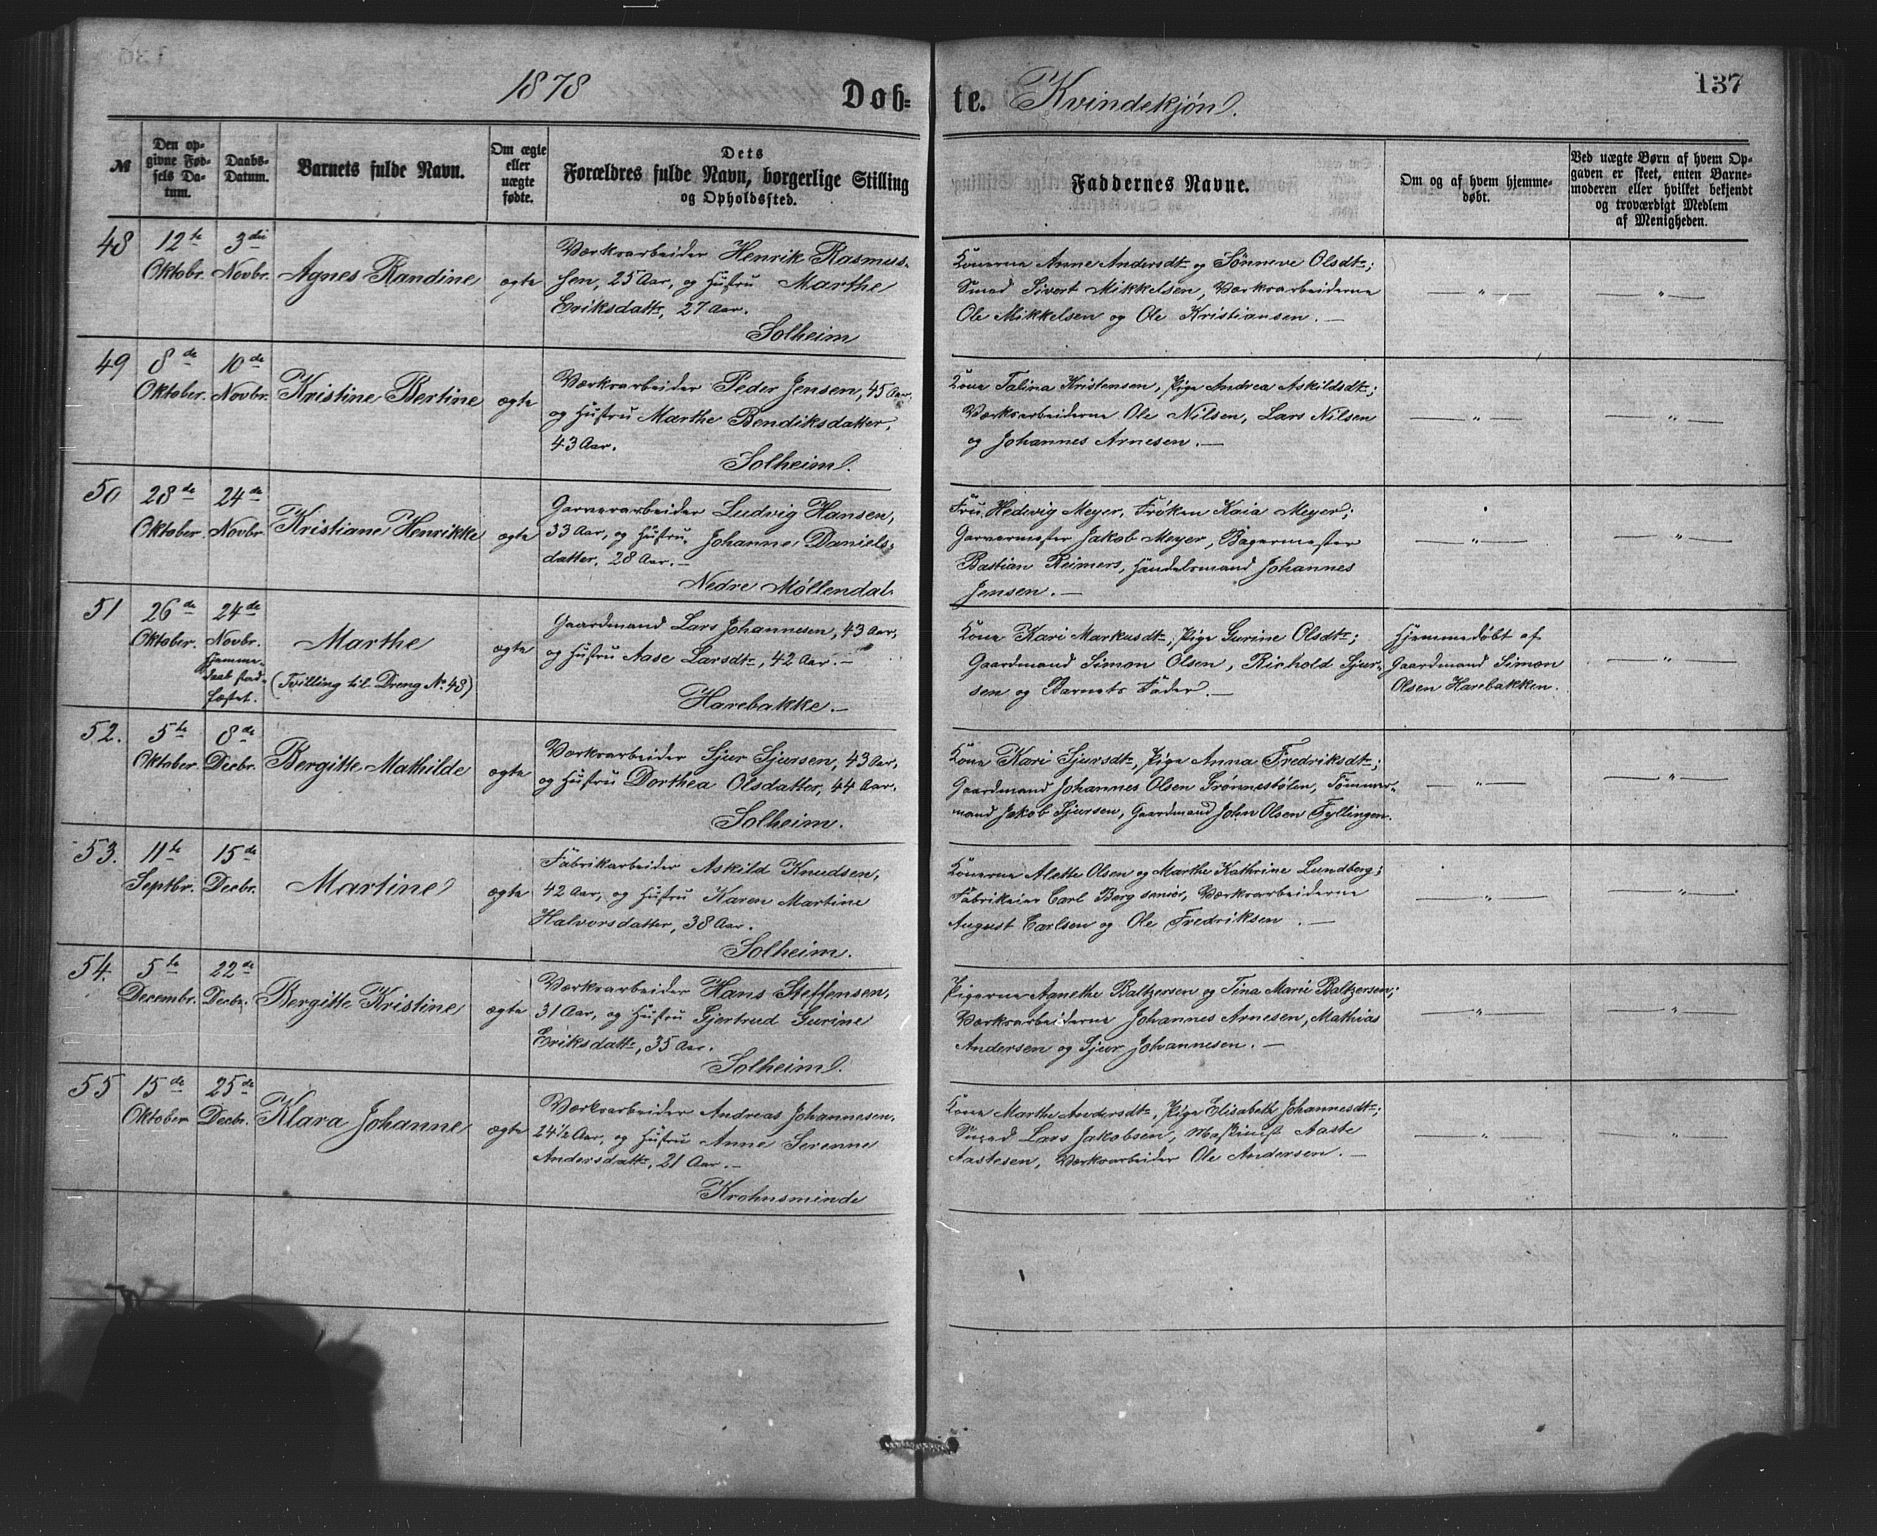 1878
Døb-
te.
Kvindekjøn.
137
№
Den op-
givne Fød-
sels Da-
tum.
Daabs-
Datum.
Barnets fulde Navn.
Om ægte
eller
uægte
fødte.
Dets
Forældres fulde Navn, borgerlige Stilling
og Opholdssted.
Faddernes Navne.
Om og af hvem hjemme-
døbt.
Ved uægte Børn af hvem Op-
gaven er skeet, enten Barne-
moderen eller hvilket bekjendt
og troværdigt Medlem
af Menigheden.
48
12te
Oktobr.
3die
Novbr.
Agnes Randine
ægte
Værksarbeider Henrik Rasmus-
sen, 25 Aar, og Hustru Marthe
Eriksdattr, 27 Aar.
Solheim
Konerne Anne Andersdtr og Sønneve Olsdtr;
Smed Sivert Mikkelsen, Værksarbeiderne
Ole Mikkelsen og Ole Kristiansen. —
— " —
— " —
49
8de
Oktober.
10de
Novbr.
Kristine Bertine
ægte
Værksarbeider Peder Jensen, 45 Aar,
og Hustru Marthe Bendiksdatter,
43 Aar.
Solheim.
Kone Talina Kristensen, Pige Andrea Askildsdtr;
Værksarbeiderne Ole Nilsen, Lars Nilsen
og Johannes Arnesen. —
— " —
— " —
50
28de
Oktober
24de
Novbr
Kristiane Henrikke
ægte
Garverarbeider Ludvig Hansen,
33 Aar, og Hustru, Johanne Daniels-
datter, 28 Aar. —
Nedre Møllendal.
Fru Hedevig Meyer, Frøken Kaia Meyer;
Garvermester Jakob Meyer, Bagermester
Bastian Reimers, Handelsmand Johannes
Jensen. —
— " —
— " —
51
26de
Oktober.
24de
Novbr.
Hjemme-
daab stad-
fæstet.
Marthe
(Tvilling til Dreng No. 48)
ægte
Gaardmand Lars Johannesen, 43 Aar,
og Hustru Aase Larsdtr, 42 Aar. —
Harebakke. —
Kone Kari Markusdtr, Pige Gurine Olsdtr;
Gaardmand Simon Olsen, Richold Sjur-
sen og Barnets Fader. —
Hjemmedøbt af
Gaardmand Simon
Olsen Harebakken.
— " —
52.
5te
Oktober.
8de
Decbr.
Bergitte Mathilde
ægte
Værksarbeider Sjur Sjursen, 43 Aar,
og Hustru Dorthea Olsdatter, 44 Aar.
Solheim.
Kone Kari Sjursdtr, Pige Anna Fredriksdtr;
Gaardmand Johannes Olsen Frønnestølen, Tømmer-
mand Jakob Sjursen, Gaardmand John Olsen Fyllingen.
— " —
— " —
53.
11te
Septbr.
15de
Decbr.
Martine
ægte
Fabrikarbeider Askild Knudsen,
42 Aar, og Hustru Karen Martine
Halvorsdatter, 38 Aar.
Solheim.
Konerne Alette Olsen og Marthe Kathrine Lundberg;
Fabrikeier Carl Berg senior, Værksarbeiderne
August Carlsen og Ole Fredriksen. —
— " —
— " —
54.
5te
Decembr.
22de
Decbr.
Bergitte Kristine
ægte
Værksarbeider Hans Steffensen,
31 Aar, og Hustru Gjertrud Gurine
Eriksdattr, 35 Aar.
Solheim.
Pigerne Agnethe Baltzersen og Tina Marie Baltzersen;
Værksarbeiderne Johannes Arnesen, Mathias
Andersen og Sjur Johannesen. —
— " —
— " —
55
15de
Oktober
25de
Decbr.
Klara Johanne
ægte
Værksarbeider Andreas Johannesen,
24 1/2 Aar, og Hustru Anne Serenne
Andersdattr, 21 Aar. —
Krohnsminde
Kone Marthe Andersdtr, Pige Elisabeth Johannesdtr;
Smed Lars Jakobsen, Maskinist Aaste
Aastesen, Værksarbeider Ole Andersen. —
— " —
— " —